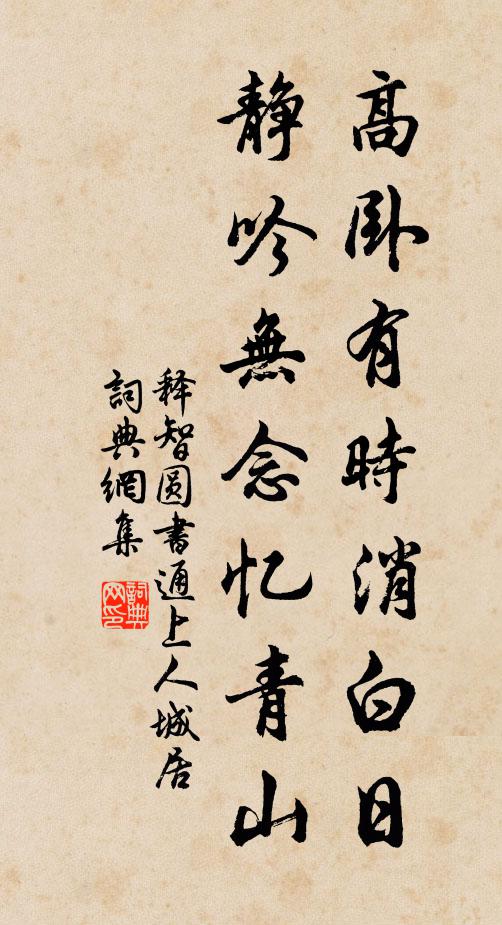 高卧有時消白日
静吟無念忆青山
释智圆書通上人城居
詞典網集
詞典网印